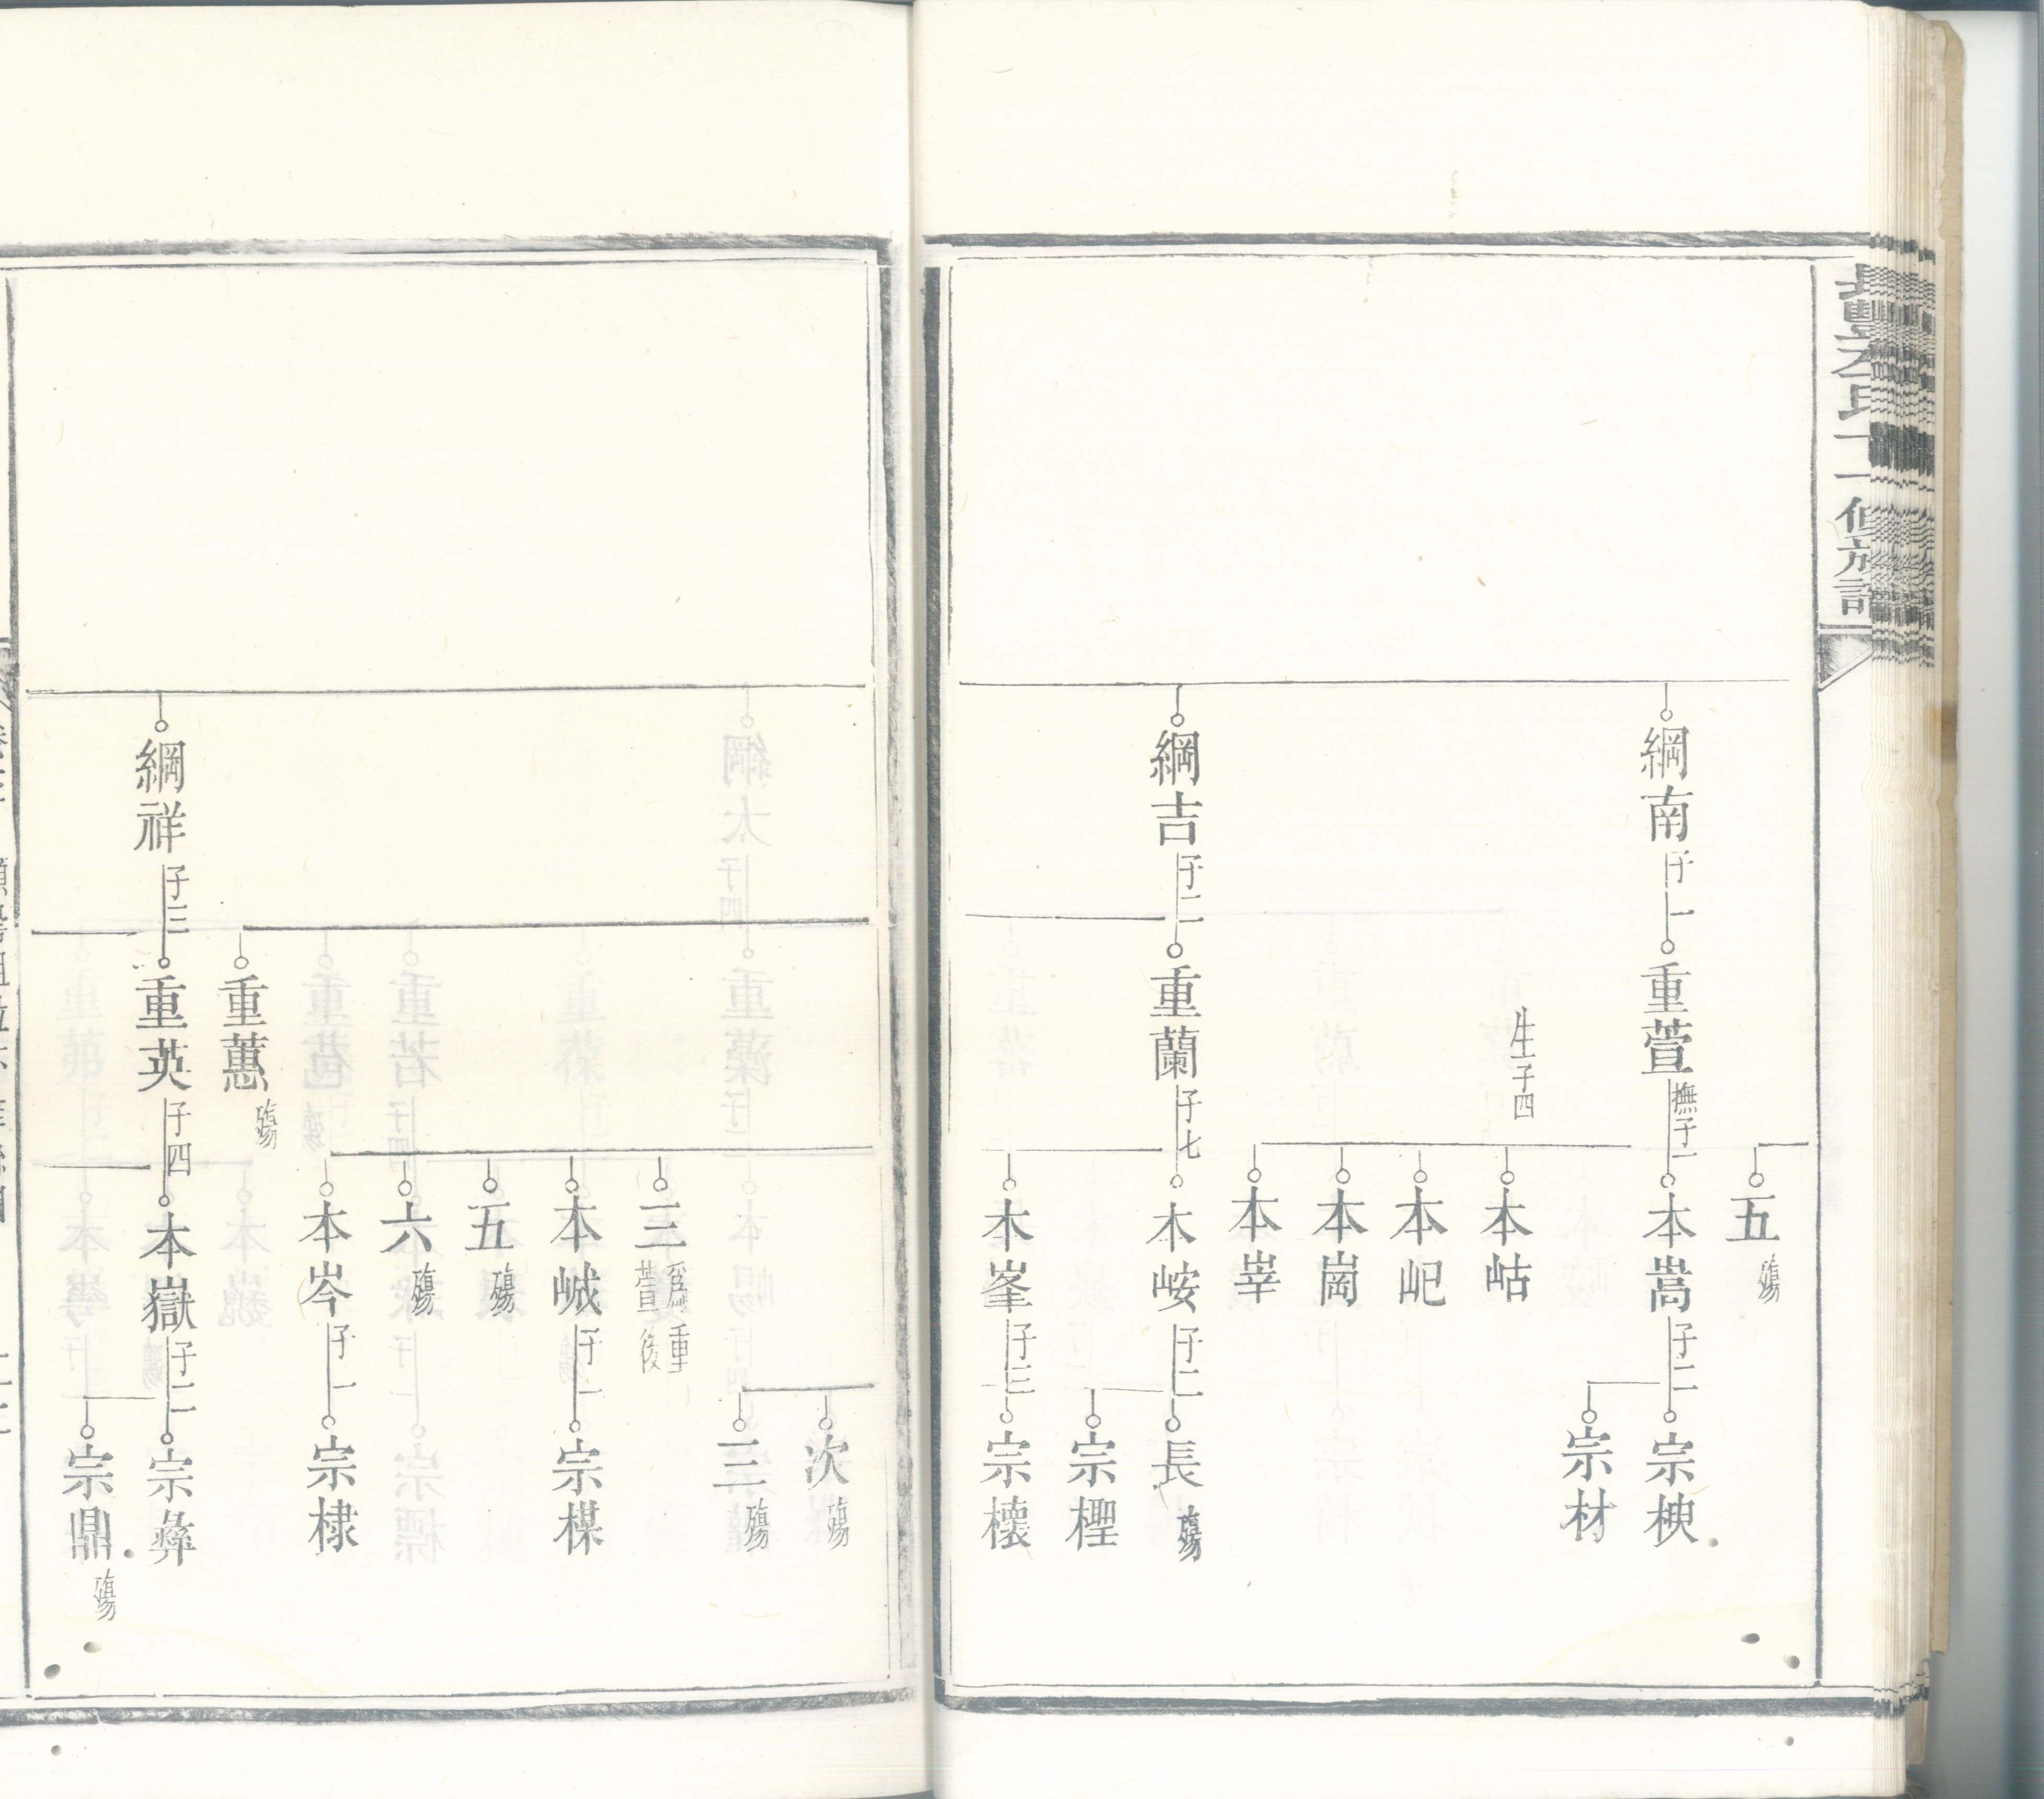 綱南 子一
重萱 撫子一
生子四
五 殤
本嵩 子二
本岵
本屺
本崗
本崒
宗柍
宗材
綱吉 子二
重蘭 子七
本峖 子二
本峯 子三
長 殤
宗檉
宗櫰
次 殤
三 殤
三 爲重萱後
本峸 子一
五 殤
六 殤
本岑 子一
宗楳
宗棣
重蕙 殤
綱祥 子三
重英 子四
本嶽 子二
宗彝
宗鼎 殤